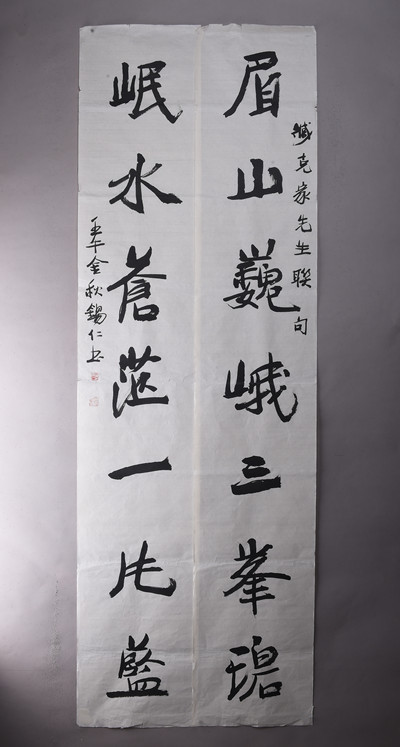 臧克家先生聯句
眉山巍峨三峯碧
岷水蒼茫一片藍
壬午金秋錫仁书